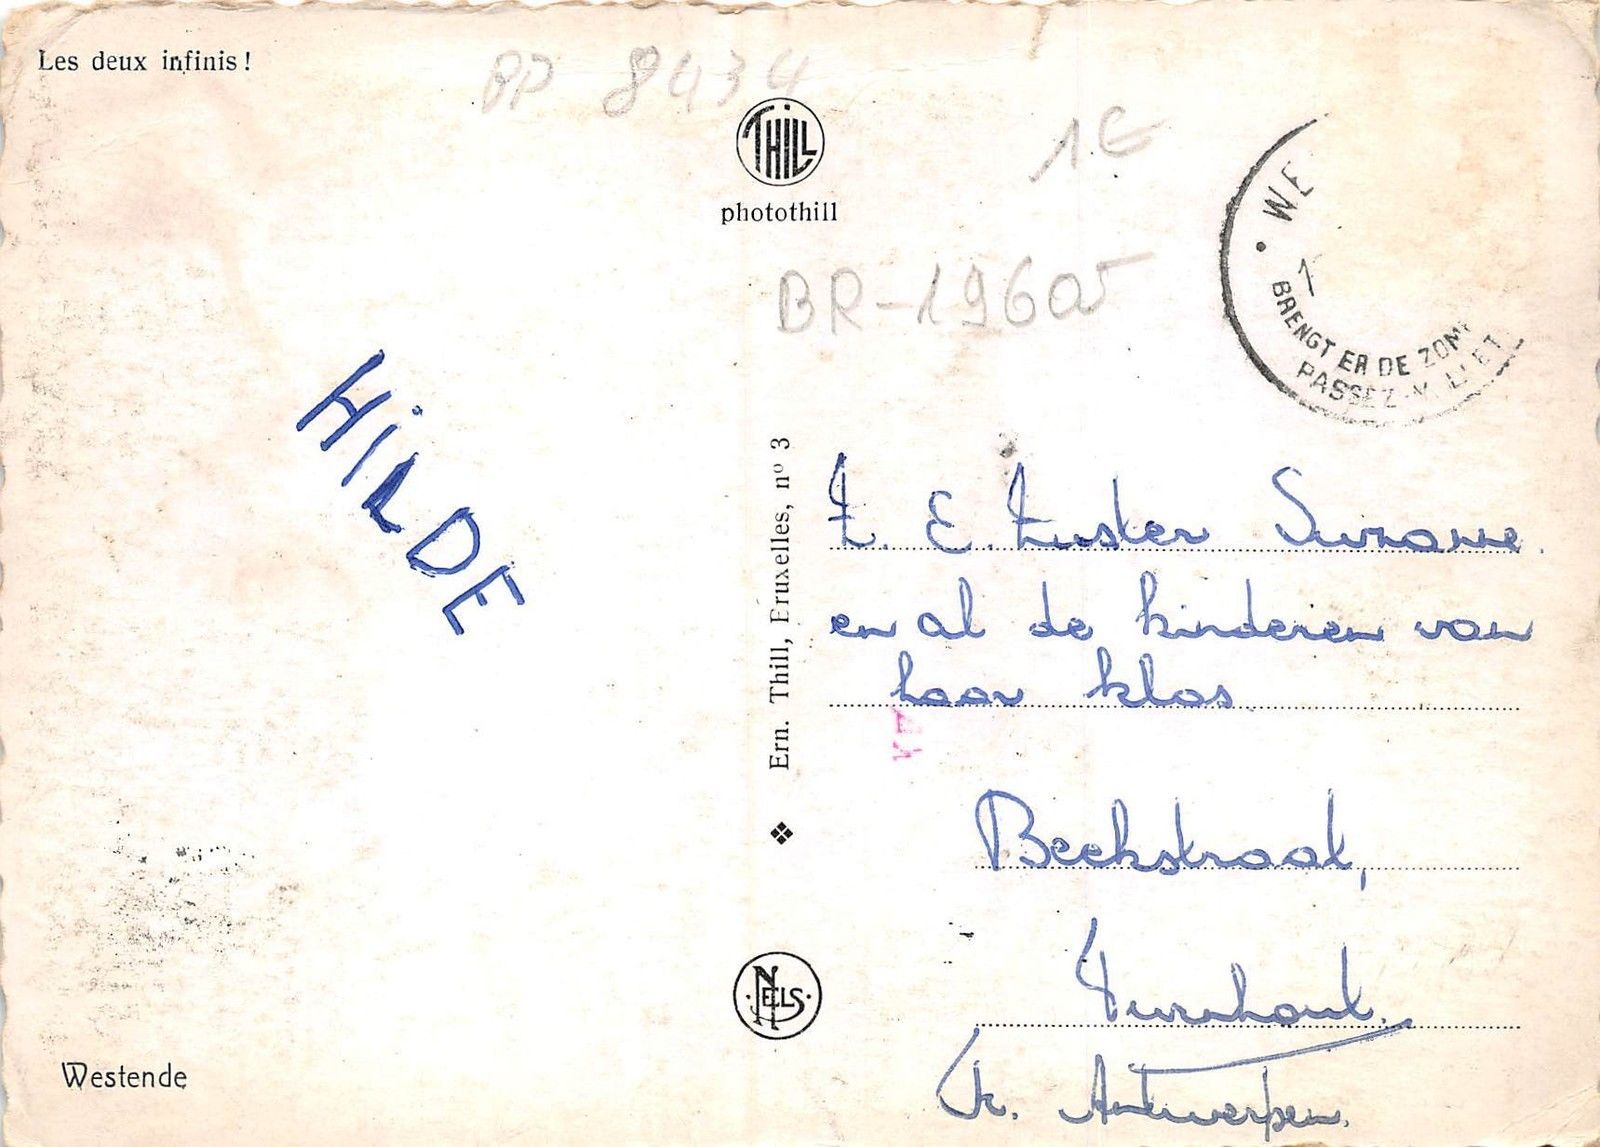 Les deux infinis !
PP 8434
THILL
photothill
1€
BR-19605
WE
1
BRENGT ER DE ZOM
PASSEZ-Y L'ET
HiLDE
Ern. Thill, Bruxelles, nº 3
Z. E. Zuster Suzanne.
en al de kinderen van
haar klas
Beekstraat,
Turnhout.
Pr. Antwerpen.
NELS
Westende